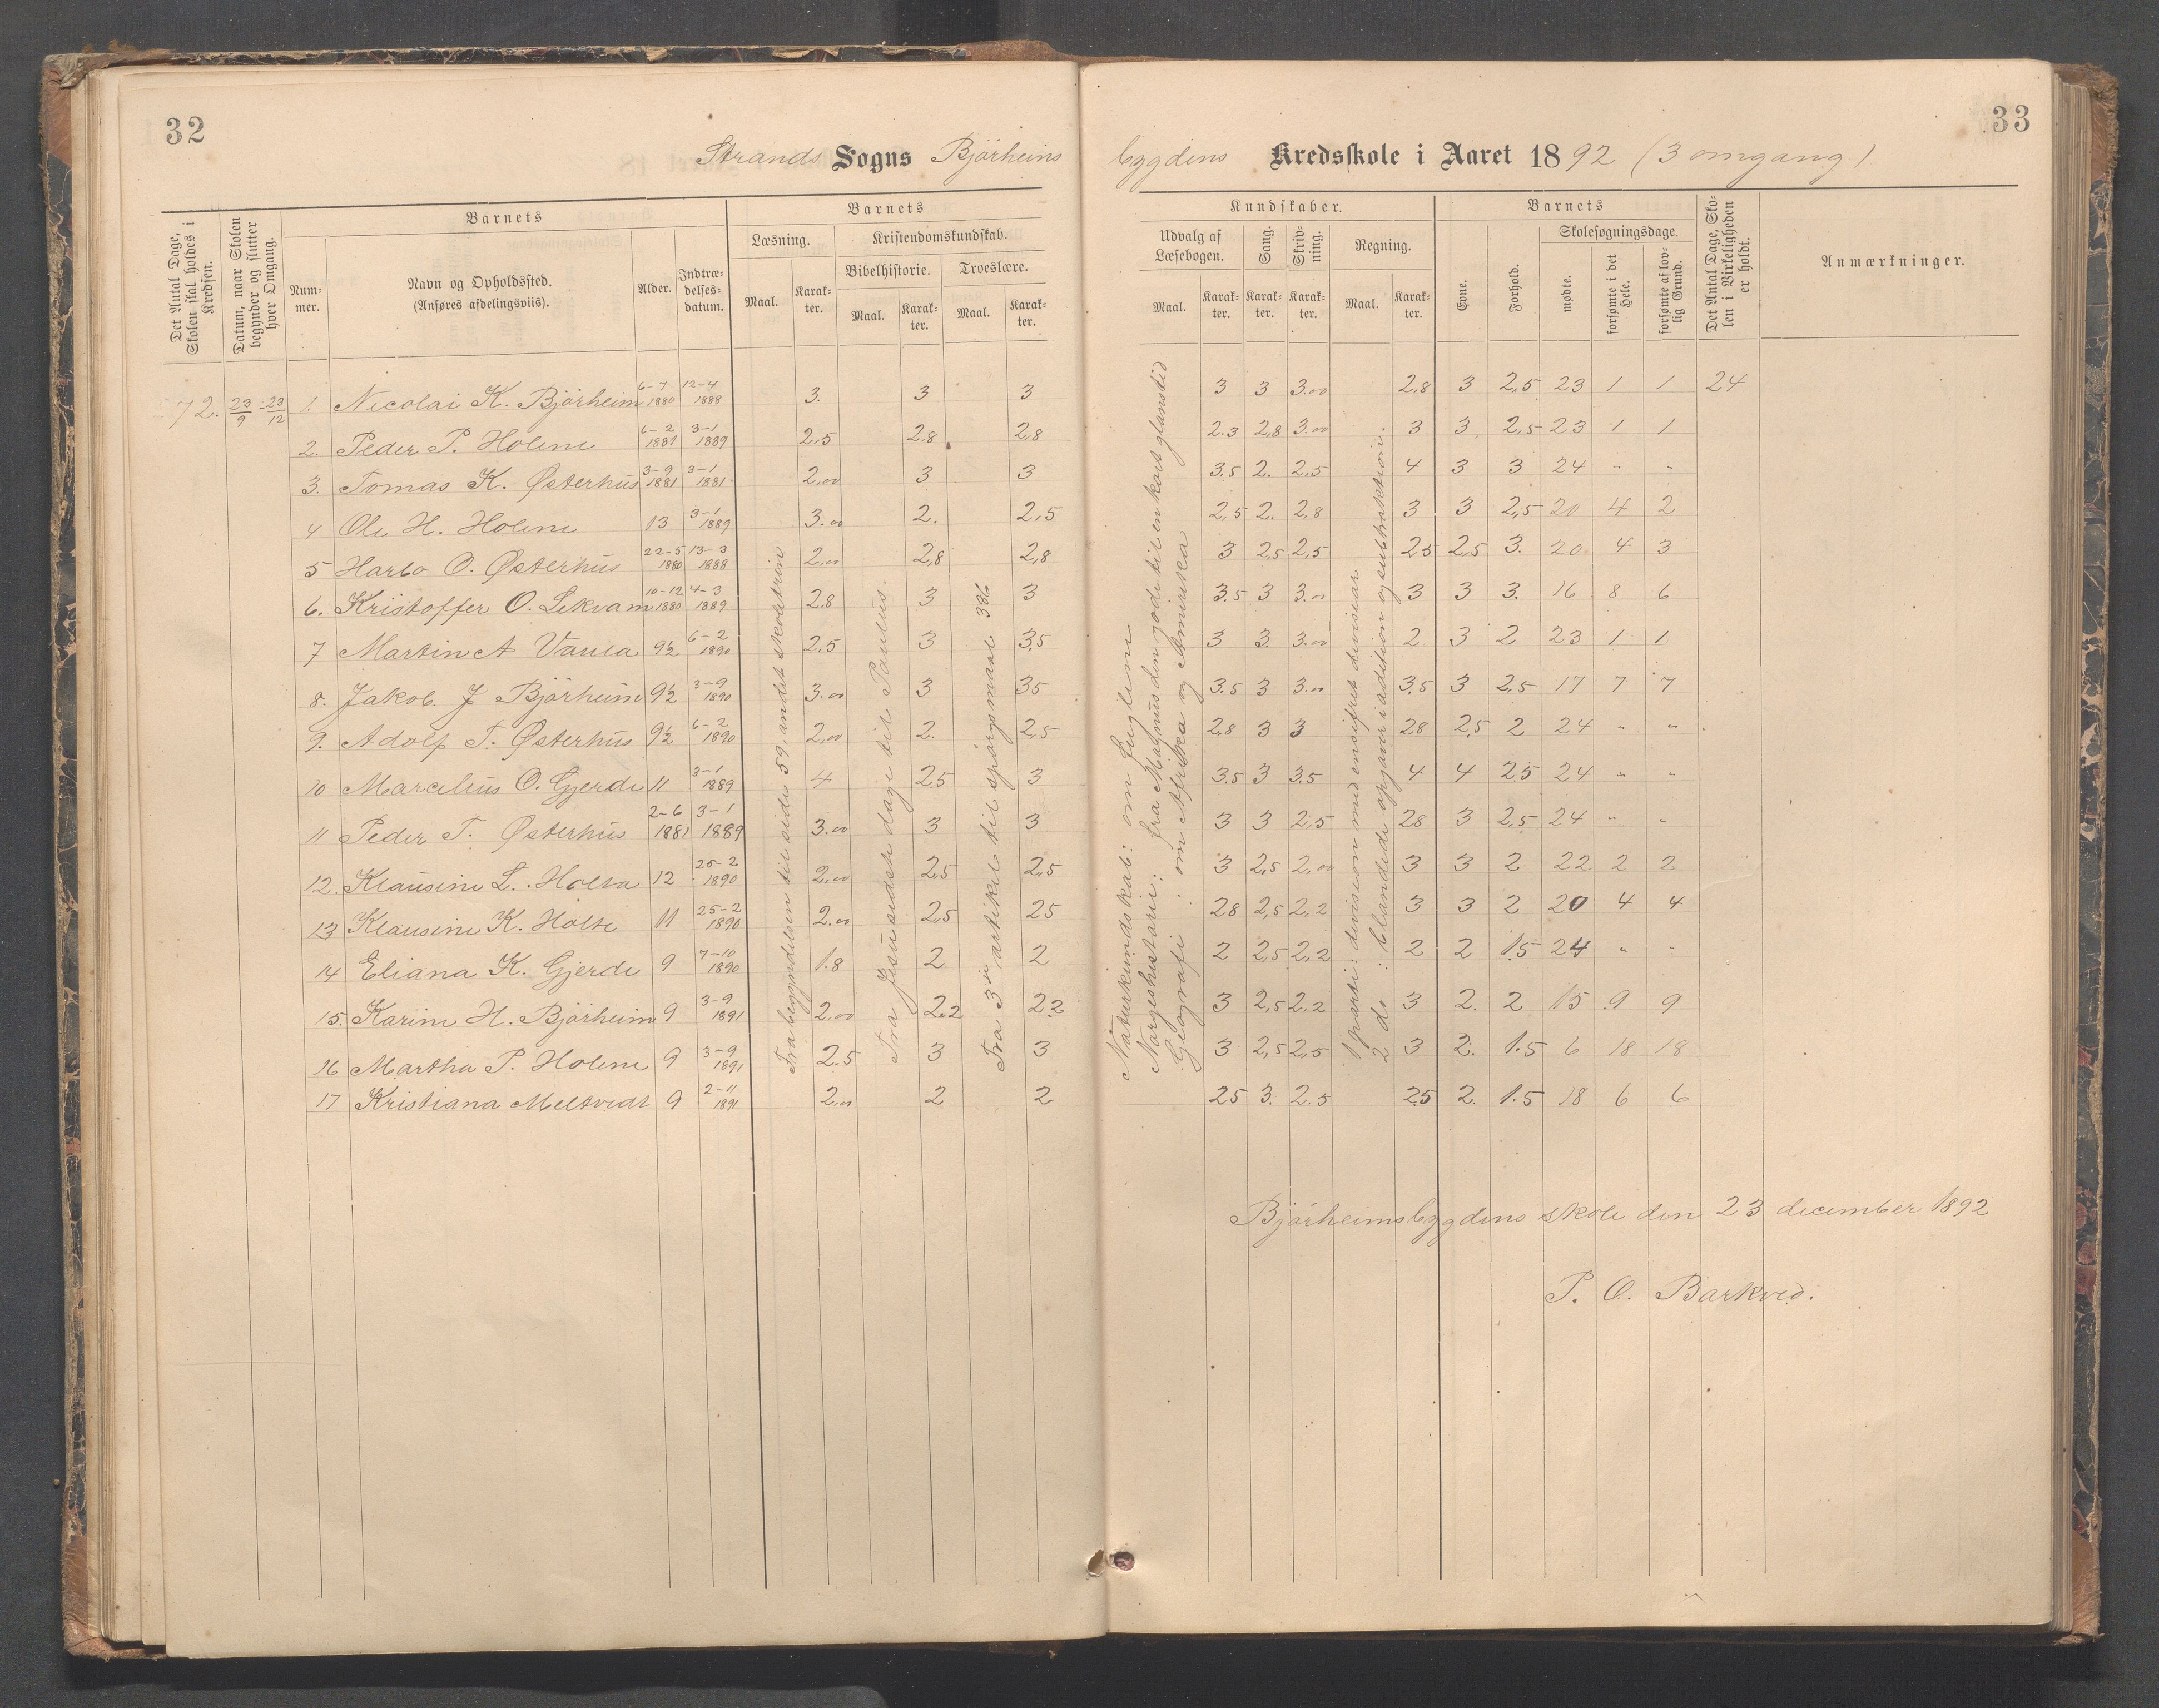 32
33
Strands Sogns Bjørheims
bygdens Kredsskole i Aaret 1892 (3 omgang)
Det Antal Dage, Skolen skal holdes i Kredsen.
Datum, naar Skolen begynder og slutter hver Omgang.
Barnets
Nummer.
Navn og Opholdssted.
(Anføres afdelingsviis).
Alder.
Indtrædelsesdatum.
Barnets
Læsning.
Maal. Karakter.
Kristendomskundskab.
Bibelhistorie. Troeslære.
Maal. Karakter. Maal. Karakter.
Kundskaber.
Udvalg af Læsebogen.
Maal. Karakter.
Sang.
Karakter.
Skrivning.
Karakter.
Regning.
Maal. Karakter.
Barnets
Evne.
Forhold.
Skolesøgningsdage.
mødte.
forsømte i det Hele.
forsømte af lovlig Grund.
Det Antal Dage, Skolen i Virkeligheden er holdt.
Anmærkninger.
72. 23/9 - 23/12
1. Nicolai K. Bjørheim 6-7 1880 12-4 1888 3. 3 3 3 3 3.00 2,8 3 2,5 23 1 1 24
2. Peder P. Holene 6-2 1881 3-1 1889 2,5 2,8 2,8 2.3 2,8 3.00 3 3 2,5 23 1 1
3. Tomas K. Østerhus 3-9 1881 3-1 1881 2,00 3 3 3.5 2. 2,5 4 3 3 24 " "
4 Ole H. Holene 13 3-1 1889 3.00 2. 2,5 2,5 2. 2,8 3 3 2,5 20 4 2
5 Harbo O. Østerhus 22-5 1880 13-3 1888 2,00 2,8 2,8 3 2,5 2,5 25 2,5 3. 20 4 3
6. Kristoffer O. Lekvam 10-12 1880 4-3 1889 2.8 3 3 3.5 3 3.00 3 3 3. 16 8 6
7 Martin A Vaula 9½ 6-2 1890 2,5 3 3.5 3 3 3.00 2 3 2 23 1 1
8. Jakob. J Bjørheim 9½ 3-9 1890 3.00 3 35 3.5 3 3.00 3,5 3 2,5 17 7 7
9. Adolf T. Østerhus 9½ 6-2 1890 2,00 2. 2,5 2,8 3 3 28 2,5 2 24 " "
10 Marcelius O. Gjerde 11 3-1 1889 4 2,5 3 3.5 3 3.5 4 4 2,5 24 " "
11 Peder T. Østerhus 2-6 1881 3-1 1889 3.00 3 3 3 3 2,5 28 3 2,5 24 " "
12. Klausine L. Holta 12 25-2 1890 2,00 2,5 2,5 3 2,5 2,00 3 3 2 22 2 2
13 Klausine K. Holte 11 25-2 1890 2.00 2,5 25 28 2,5 2,2 3 3 2 20 4 4
14 Eliana K. Gjerde 9 7-10 1890 1.8 2 2 2 2,5 2,2 2 2 1.5 24 " "
15. Karine H. Bjørheim 9 3-9 1891 2,00 2.2 2.2 3 2,5 2,2 3 2. 2 15 9 9
16 Martha P. Holene 9 3-9 1891 2.5 3 3 3 2,5 2,5 3 2. 1.5 6 18 18
17 Kristiana Meltveit 9 2-11 1891 2.00 2 2 25 3. 2.5 2,5 2. 1.5 18 6 6
Fra begyndelsen til side 59, andet skoletrin
Fra Jesu sidste dage til Paulus.
Fra 3die artikel til spørgsmaal 386
Naturkundskab: om fuglene
Norgeshistorie: fra Magnus den gode til en kort glanstid
Geografi: om Afrika og Amerika
1 parti: division med ensifret divisor
2 do: blandede opgaver i addition og subtraktion.
Bjørheimsbygdens skole den 23 december 1892
P. O. Barkved.